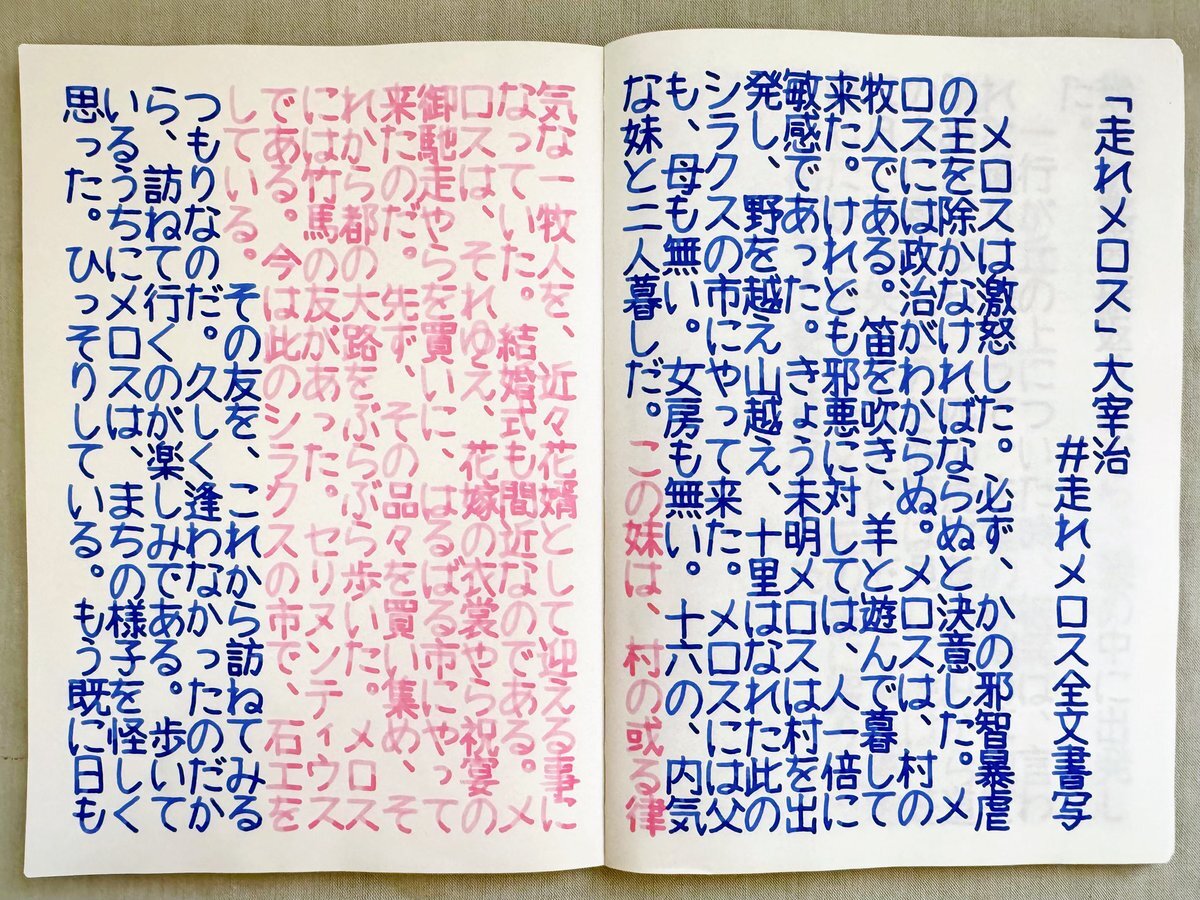 「走れメロス」大宰治
#走れメロス全文書写
メロスは激怒した。必ず、かの邪智暴虐
の王を除かなければならぬと決意した。メ
ロスには政治がわからぬ。メロスは、村の
牧人である。笛を吹き、羊と遊んで暮して
来た。けれども邪悪に対しては、人一倍に
敏感であった。きょう未明メロスは村を出
発し、野を越え山越え、十里はなれた此の
シラクスの市にやって来た。メロスには父
も、母も無い。女房も無い。十六の、内気
な妹と二人暮しだ。この妹は、村の或る律
気な一牧人を、近々花婿として迎える事に
なっていた。結婚式も間近なのである。メ
ロスは、それゆえ、花嫁の衣裳やら祝宴の
御馳走やらを買いに、はるばる市にやって
来たのだ。先ず、その品々を買い集め、そ
れから都の大路をぶらぶら歩いた。メロス
には竹馬の友があった。セリヌンティウス
である。今は此のシラクスの市で、石工を
している。その友を、これから訪ねてみる
つもりなのだ。久しく逢わなかったのだか
ら、訪ねて行くのが楽しみである。歩いて
いるうちにメロスは、まちの様子を怪しく
思った。ひっそりしている。もう既に日も